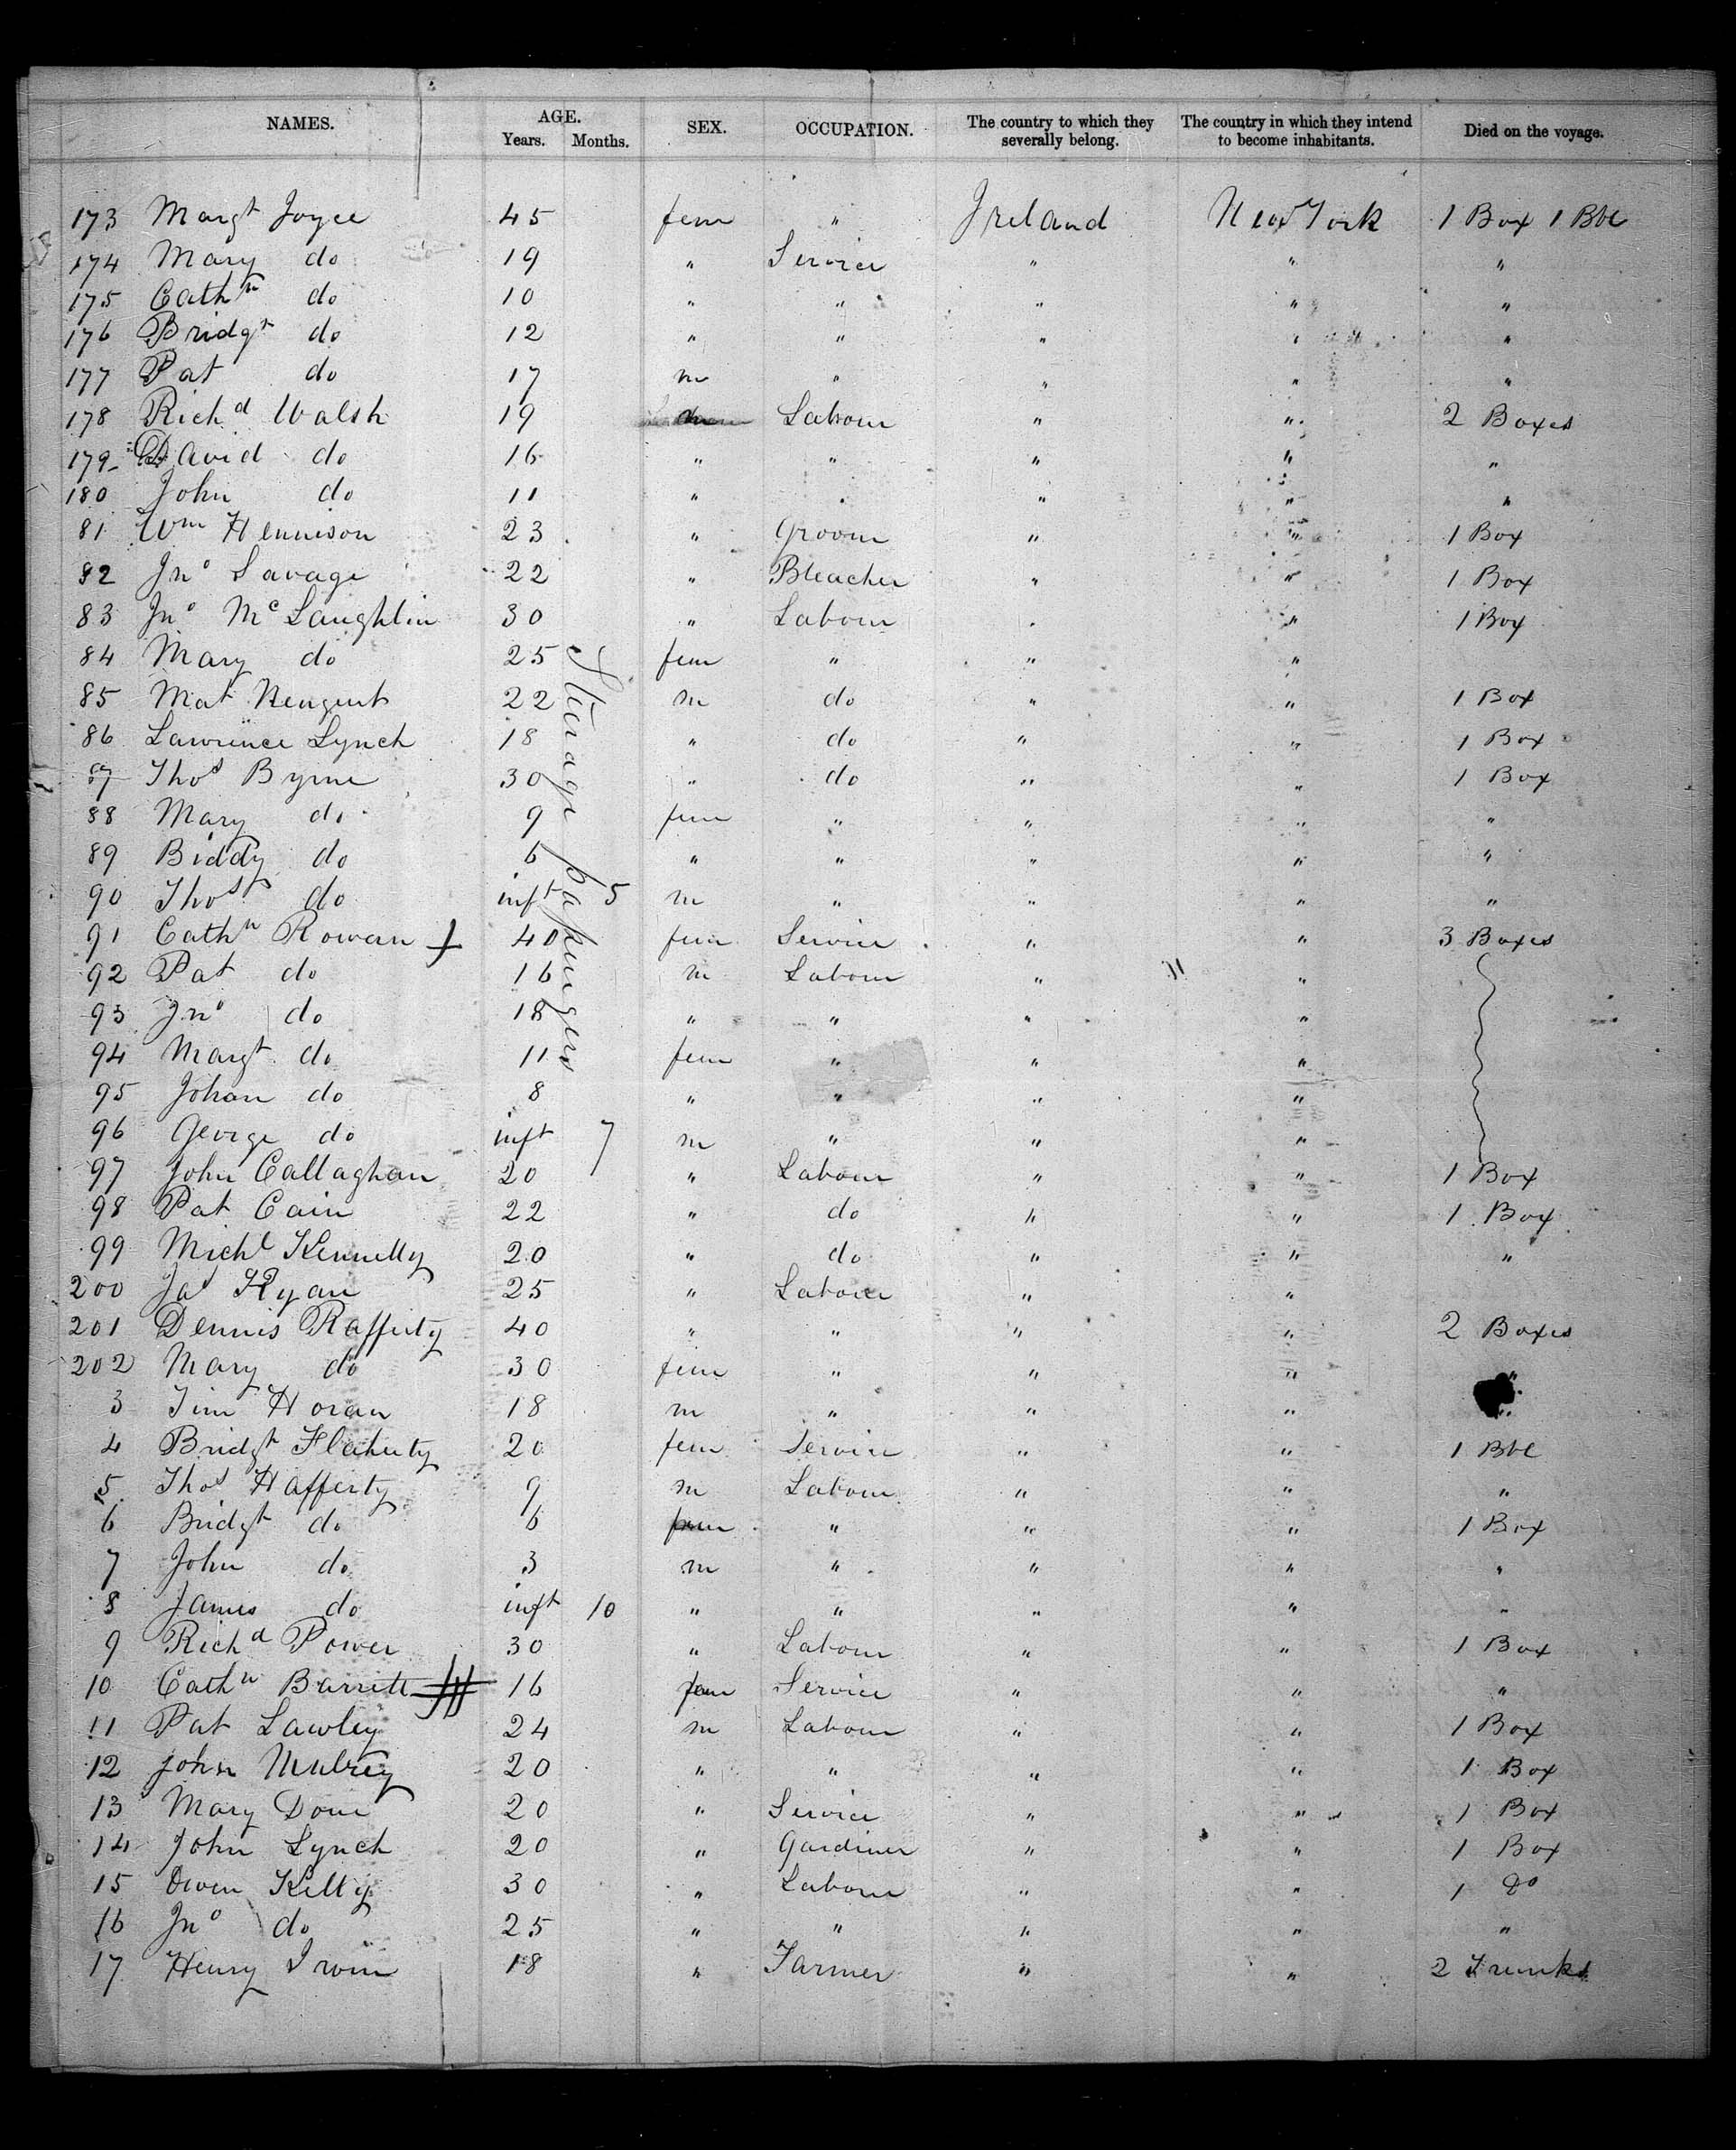 NAMES. AGE. Years. Months. SEX. OCCUPATION. The country to which they severally belong. The country in which they intend to become inhabitants. Died on the voyage.
173 Margt Joyce 45 fem " Ireland New York 1 Box 1 Bbl
174 Mary do 19 " Service " " "
175 Cathn do 10 " " " " "
176 Bridgt do 12 " " " " "
177 Pat do 17 m " " " "
178 Richd Walsh 19 m Labour " " 2 Boxes
179 David do 16 " " " " "
180 John do 11 " " " " "
81 Wm Hennison 23 " Groom " " 1 Box
82 Jno Savage 22 " Bleacher " " 1 Box
83 Jno McLaughlin 30 " Labour " " 1 Box
84 Mary do 25 fem " " "
85 Mat Neugent 22 m do " " 1 Box
86 Lawrence Lynch 18 " do " " 1 Box
87 Thos Byrne 30 " do " " 1 Box
88 Mary do 9 fem " " " "
89 Biddy do 6 " " " " "
90 Thos do inft 5 m " " " "
91 Cathn Rowan 40 fem Service " " 3 Boxes
92 Pat do 16 m Labour " "
93 Jno do 18 " " " "
94 Margt do 11 fem " " "
95 Johan do 8 " " " "
96 George do inft 7 m " " "
97 John Callaghan 20 " Labour " " 1 Box
98 Pat Cain 22 " do " " 1 Box
99 Michl Kennelly 20 " do " " "
200 Jas Ryan 25 " Labour " "
201 Dennis Rafferty 40 " " " " 2 Boxes
202 Mary do 30 fem " " " "
3 Tim Horan 18 m " " " "
4 Bridgt Flaherty 20 fem Service " " 1 Bbl
5 Thos Hafferty 9 m Labour " " "
6 Bridgt do 6 fem " " " 1 Box
7 John do 3 m " " " "
8 James do inft 10 " " " " "
9 Richd Power 30 " Labour " " 1 Box
10 Cathn Barrett 16 fem Service " " "
11 Pat Lawley 24 m Labour " " 1 Box
12 John Mulrey 20 " " " " 1 Box
13 Mary Dow 20 " Service " " 1 Box
14 John Lynch 20 " Gardiner " " 1 Box
15 Owen Kelly 30 " Labour " " 1 Do
16 Jno do 25 " " " " "
17 Henry Irwin 18 " Farmer " " 2 Trunks
Steerage passengers